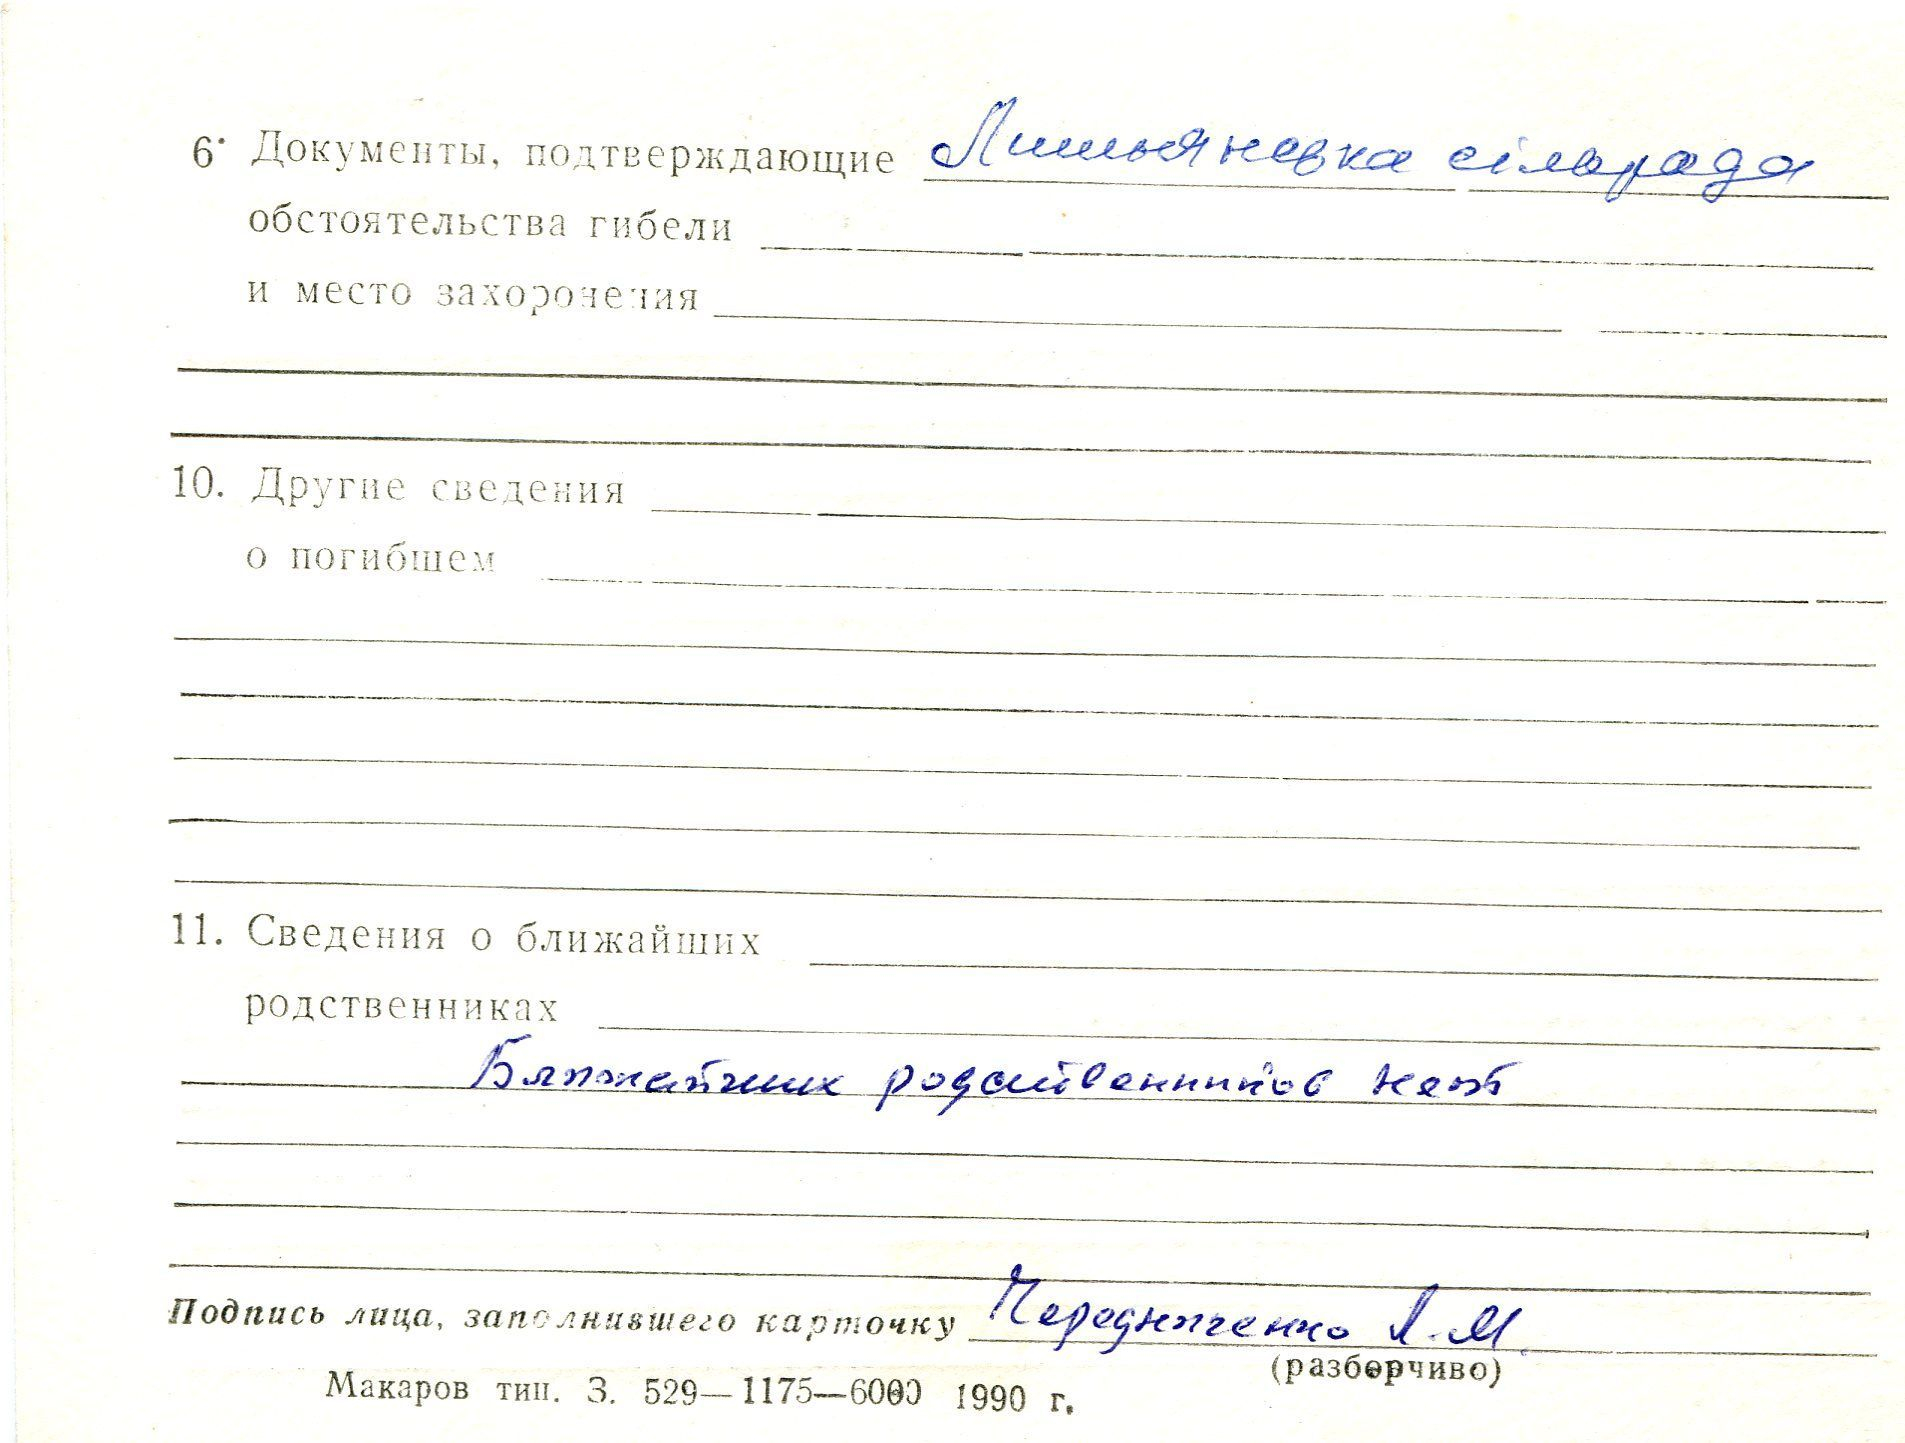 6. Документы, подтверждающие сільрада
обстоятельства гибели
и место захоронения
10. Другие сведения
о погибшем
11. Сведения о ближайших
родственниках
Ближайших родственников нет
Подпись лица, заполнившего карточку Чередниченко Л. М.
(разборчиво)
Макаров тип. З. 529—1175—6000 1990 г.